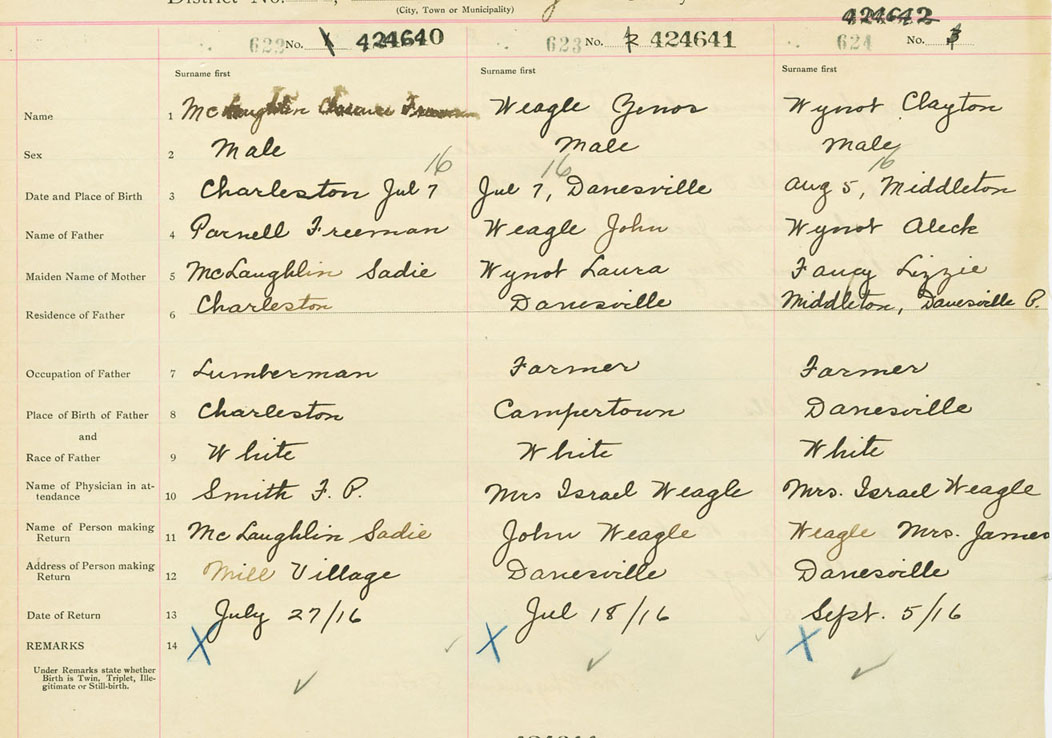 District No.
(City, Town or Municipality)
622 No. 1 424640 623 No. 2 424641 424642 624 No. 3
Surname first Surname first Surname first
Name 1 McLaughlin Clarence Freeman Weagle Genos Wynot Clayton
Sex 2 Male Male Male
16 16 16
Date and Place of Birth 3 Charleston Jul 7 Jul 7, Danesville Aug 5, Middleton
Name of Father 4 Parnell Freeman Weagle John Wynot Aleck
Maiden Name of Mother 5 McLaughlin Sadie Wynot Laura Fancy Lizzie
Residence of Father 6 Charleston Danesville Middleton, Danesville P.
Occupation of Father 7 Lumberman Farmer Farmer
Place of Birth of Father 8 Charleston Campertown Danesville
and
Race of Father 9 White White White
Name of Physician in at-
tendance 10 Smith F. P. Mrs Israel Weagle Mrs. Israel Weagle
Name of Person making
Return 11 McLaughlin Sadie John Weagle Weagle Mrs. James
Address of Person making
Return 12 Mill Village Danesville Danesville
Date of Return 13 July 27/16 Jul 18/16 Sept. 5/16
REMARKS 14 X X X
Under Remarks state whether
Birth is Twin, Triplet, Ille-
gitimate or Still-birth.